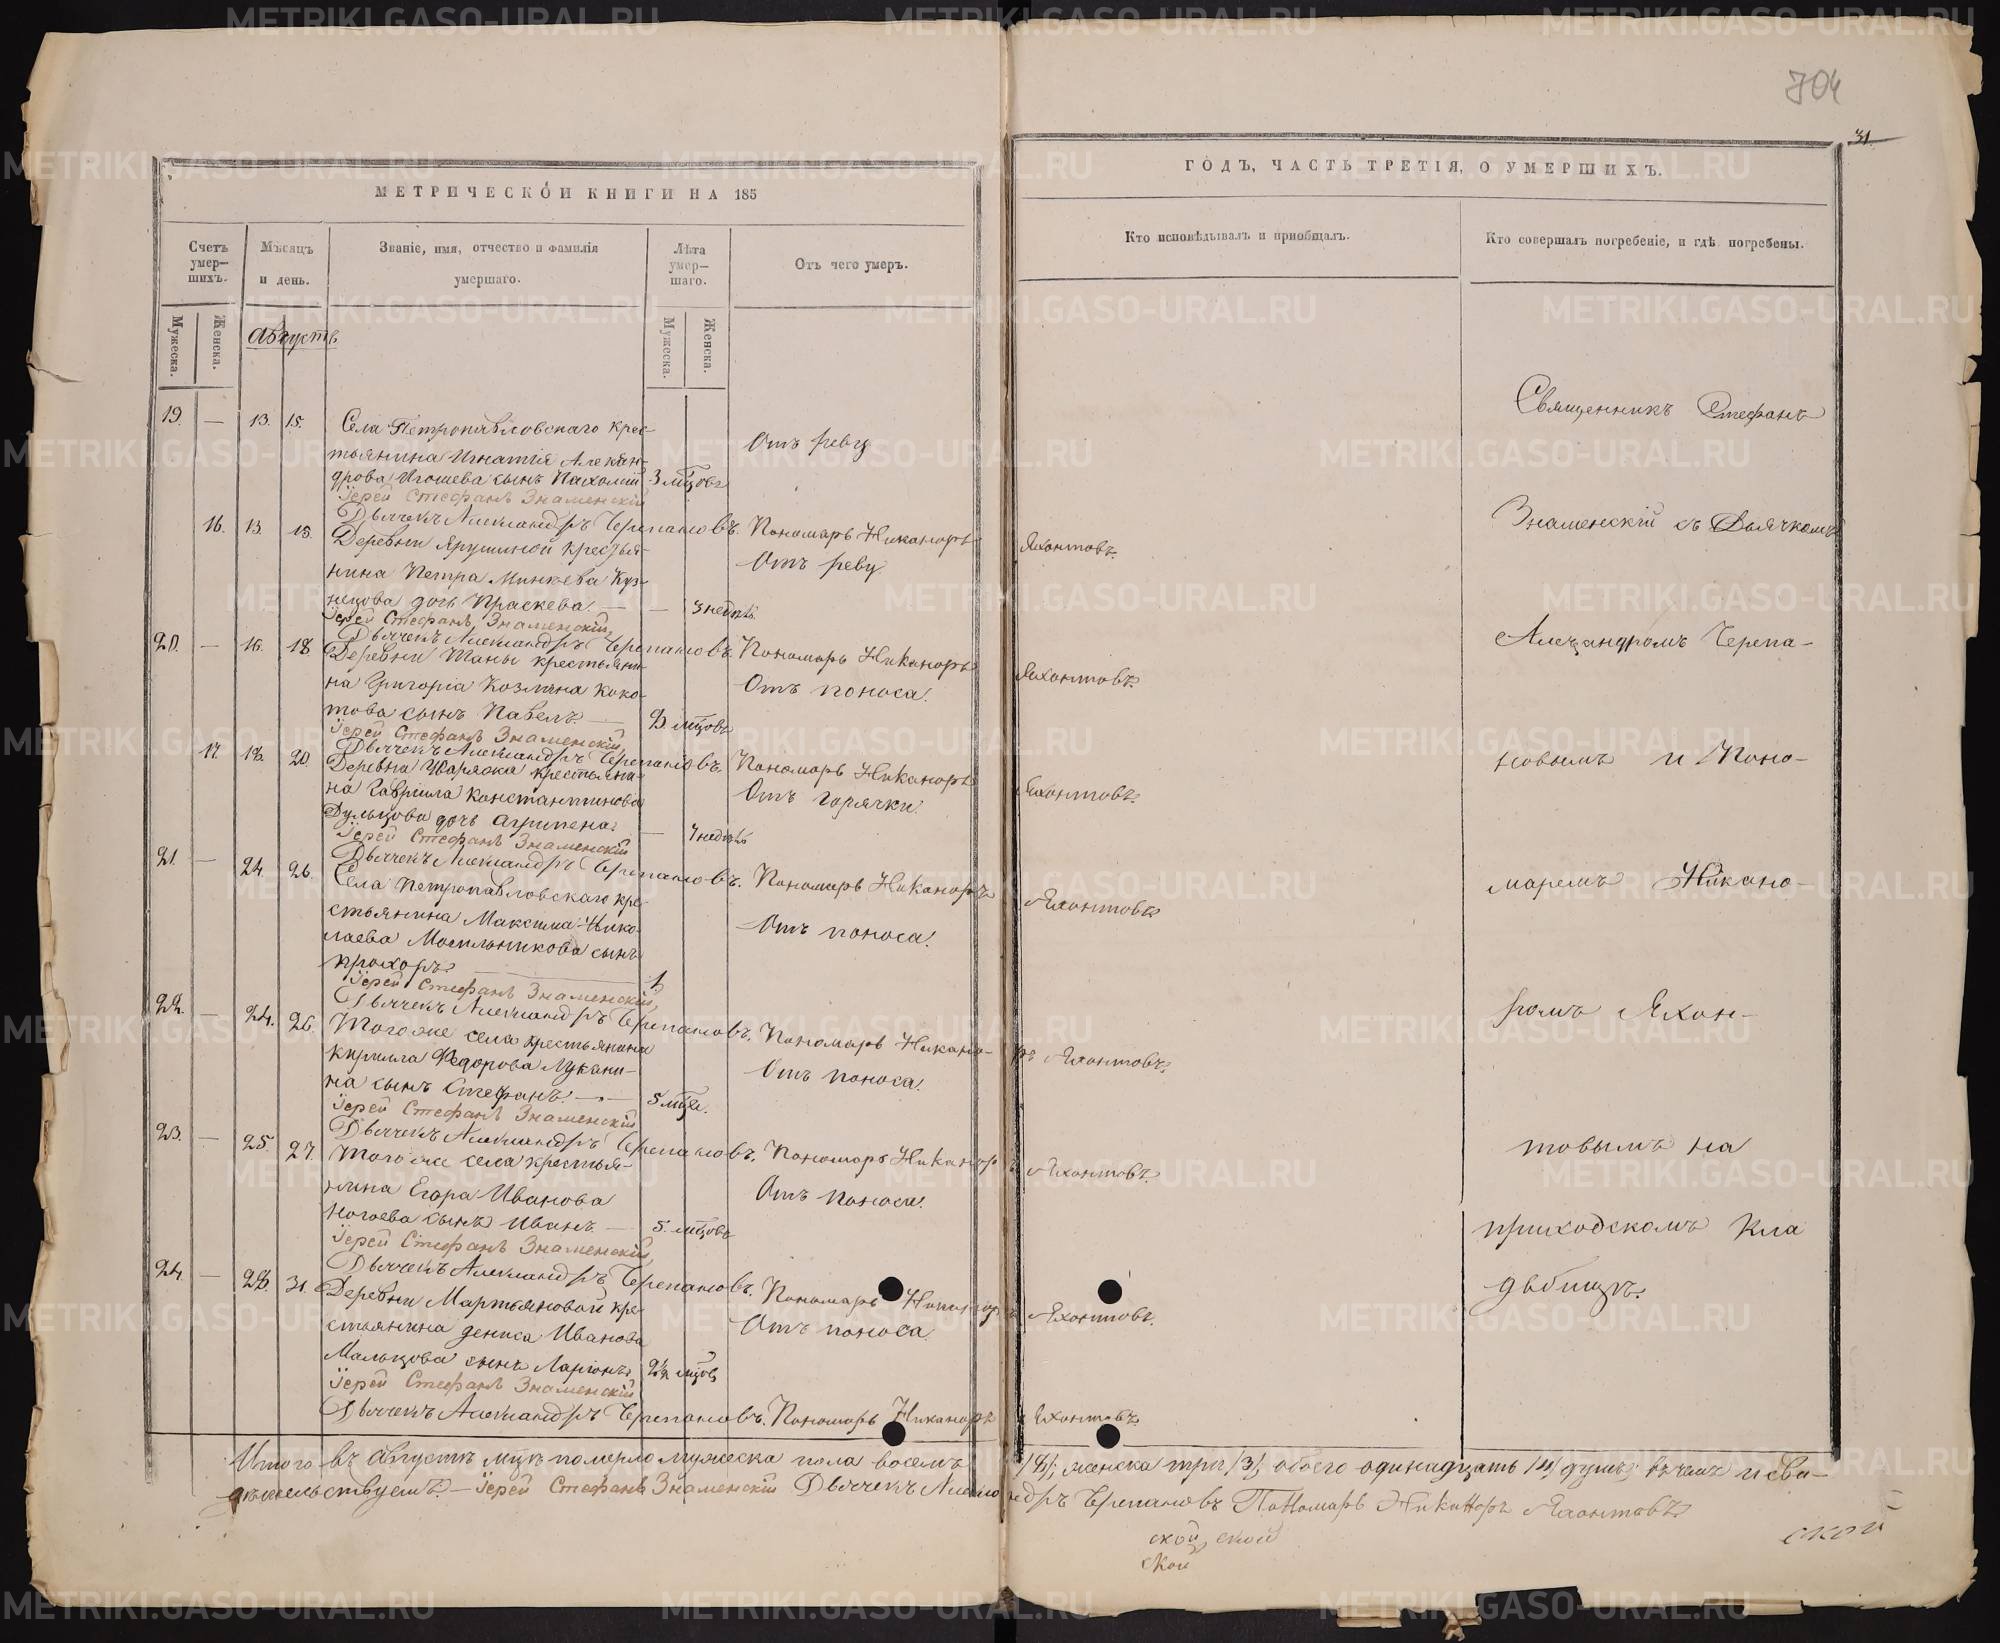 704
31.
МЕТРИЧЕСКОЙ КНИГИ НА 185
ГОДЪ, ЧАСТЬ ТРЕТІЯ, О УМЕРШИХЪ.
Счетъ умер—шихъ.
Мѣсяцъ и день.
Званіе, имя, отчество и фамилія умершаго.
Лѣта умер—шаго.
Отъ чего умеръ.
Кто исповѣдывалъ и пріобщалъ.
Кто совершалъ погребеніе, и гдѣ погребены.
Мужеска.
Женска.
Мужеска.
Женска.
Августъ
19. — 13. 15. Села Петропавловскаго крес-
тьянина Игнатія Алексан-
дрова Игошева сынъ Пахомій 3 мцовъ
Отъ реву
Іерей Стефанъ Знаменскій
Дьячекъ Александръ Черепановъ. Пономарь Никаноръ Яхонтовъ.
16. 13. 15. Деревни Ярушиной крестья-
нина Петра Минѣева Куз-
нецова дочь Праскева. — — 3 недѣль.
Отъ реву
Іерей Стефанъ Знаменскій,
Дьячекъ Александръ Черепановъ. Пономарь Никаноръ Яхонтовъ.
20. — 16. 18. Деревни крестьяни-
на Григорія Козмина Коко-
това сынъ Павелъ. — мцовъ
Отъ поноса.
Іерей Стефанъ Знаменскій,
Дьячекъ Александръ Черепановъ. Пономарь Никаноръ Яхонтовъ.
17. 18. 20. Деревни крестьяни-
на Гаврила Константинова
Дульцова дочь Агрипена. — недѣль
Отъ горячки.
Іерей Стефанъ Знаменскій
Дьячекъ Александръ Черепановъ. Пономарь Никаноръ Яхонтовъ
21. — 24. 26. Села Петропавловскаго кре-
стьянина Максима Нико-
лаева Могильникова сынъ
Прохоръ. — 1
Отъ поноса.
Іерей Стефанъ Знаменскій,
Дьячекъ Александръ Черепановъ. Пономарь Никаноръ Яхонтовъ.
22. — 24. 26. Тогоже села крестьянина
Кирилла Федорова Лукани-
на сынъ Стефанъ. — 5 мцъ.
Отъ поноса.
Іерей Стефанъ Знаменскій
Дьячекъ Александръ Черепановъ. Пономарь Никаноръ Яхонтовъ.
23. — 25. 27. Тогоже села крестья-
нина Егора Иванова
Ногаева сынъ Иванъ — 5. мцовъ
Отъ поноса.
Іерей Стефанъ Знаменскій,
Дьячекъ Александръ Черепановъ. Пономарь Никаноръ Яхонтовъ.
24. — 28. 31. Деревни Мартьяновой кре-
стьянина Дениса Иванова
Мальцова сынъ Ларіонъ. 2½ мцов
Отъ поноса.
Іерей Стефанъ Знаменскій
Дьячекъ Александръ Черепановъ. Пономарь Никаноръ Яхонтовъ.
Священникъ Стефанъ
Знаменскій съ Дьячкомъ
Александромъ Черепа-
новымъ и Поно-
маремъ Никано-
ромъ Яхон-
товымъ на
приходскомъ кла
дбищѣ.
Итого въ Августѣ мцѣ померло мужеска пола восемь /8/, женска три /3/, обоего одинадцать /11/ душъ; въ чемъ и сви-
дѣтельствуемъ. — Іерей Стефанъ Знаменскій Дьячекъ Александръ Черепановъ Пономарь Никаноръ Яхонтовъ
ской, ской
ской
ской
METRIKI.GASO-URAL.RU